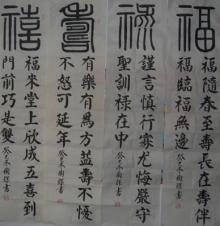 福
福隨春至壽長在壽伴
福臨福無邊
祿
謹言慎行寡尤悔嚴守
聖訓祿在中
壽
有樂有為方益壽不懮
不怒可延年
禧
福來堂上欣成五喜到
門前巧是雙